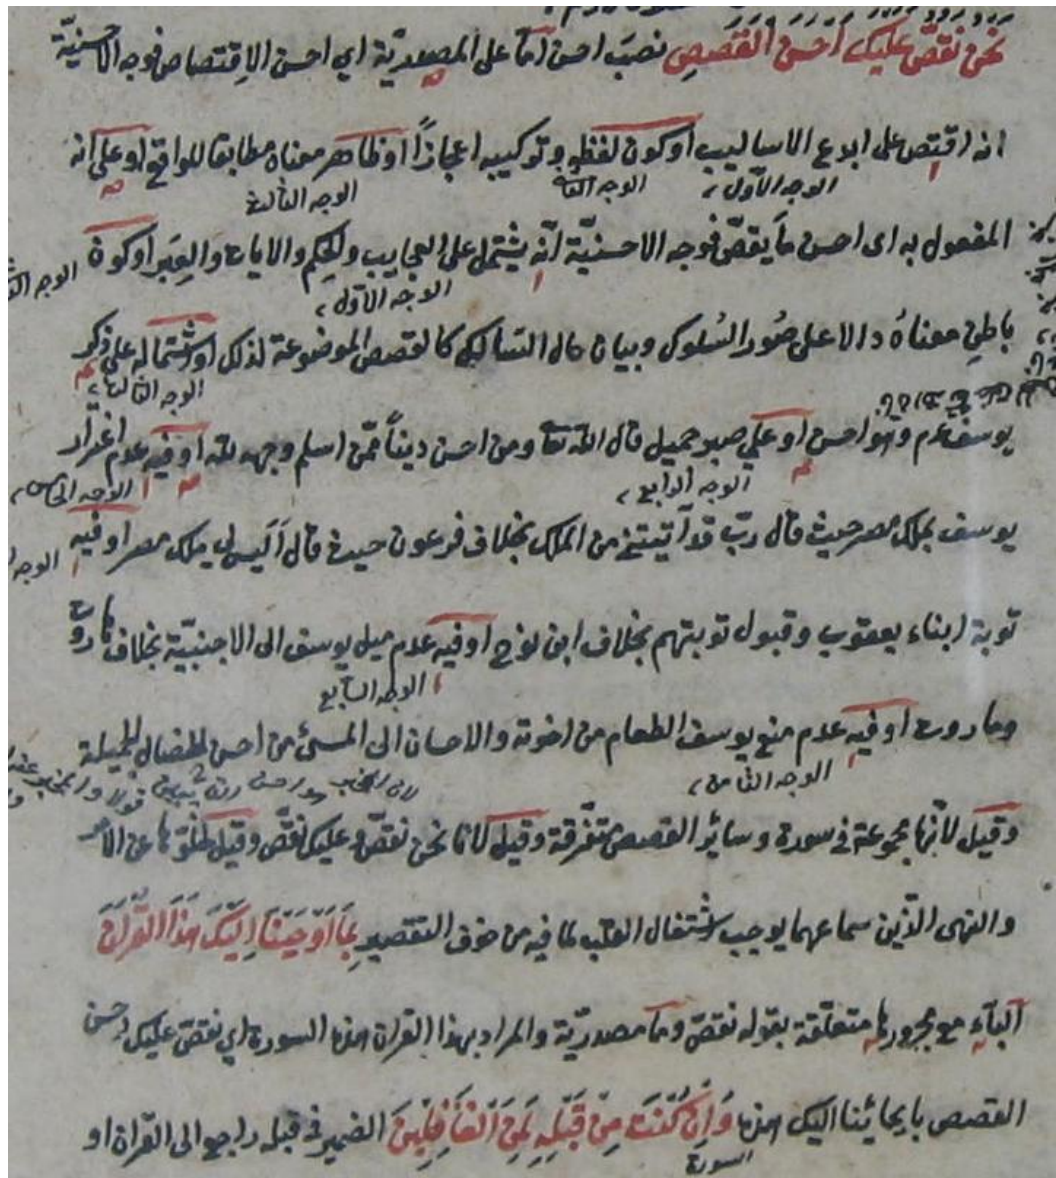 نَحْنُ نَقُصُّ عَلَيْكَ أَحْسَنَ الْقَصَصِ نصب احسن اما على المصدرية اي احسن الاقتصاص فوجه الاحسنية
انه اقتص على ابدع الاساليب او كون لفظه وتركيبه اعجازاً او ظاهر معناه مطابقا للواقع او على انه
الوجه الاول
الوجه الثالث
المفعول به اى احسن ما يقصّ فوجه الاحسنيّة انّه يشتمل على العجايب والحِكم والايات والعِبَر او كون
الوجه الاول
باطن معناه دالا على صُور السُلوك وبيان حال السالك كالقصص الموضوعة لذلك او اشتماله على ذكر
الوجه الثالث
يوسف عم وهو احسن او على صبر جميل قال الله تعا ومن احسن ديناً ممّن اسلم وجهه لله او فيه عدم اغترار
الوجه الرابع
الوجه الخامس
يوسف بملك مصر حيث قال ربّ قد آتيتنى من الملك بخلاف فرعون حيث قال اَلَيس لي ملك مصر او فيه
توبة ابناء يعقوب وقبول توبتهم بخلاف ابن نوح او فيه عدم ميل يوسف الى الاجنبيّة بخلاف هاروت
الوجه السابع
وماروت او فيه عدم منع يوسف الطعام من اخوته والاحسان الى المسئ من احسن الخصال الجميلة
الوجه الثامن
وقيل لانّها مجموعة فى سورة وسائر القصص متفرقة وقيل لانا نحن نقصّ وعليك نقصّ وقيل لخلوّها عن الامر
والنهى الّذين سماعهما يوجب اشتغال القلب لما فيه من خوف التقصير بِمَا أَوْحَيْنَا إِلَيْكَ هَذَا الْقُرْآنَ
البآء مع مجرورها متعلّقة بقوله نقصّ وما مصدريّة والمراد بهذا القران هذه السورة اي نقصّ عليك احسن
القصص بايحائنا اليك هذه وَإِنْ كُنْتَ مِنْ قَبْلِهِ لَمِنَ الْغَافِلِينَ الضمير فى قبله راجع الى القران او
السورة